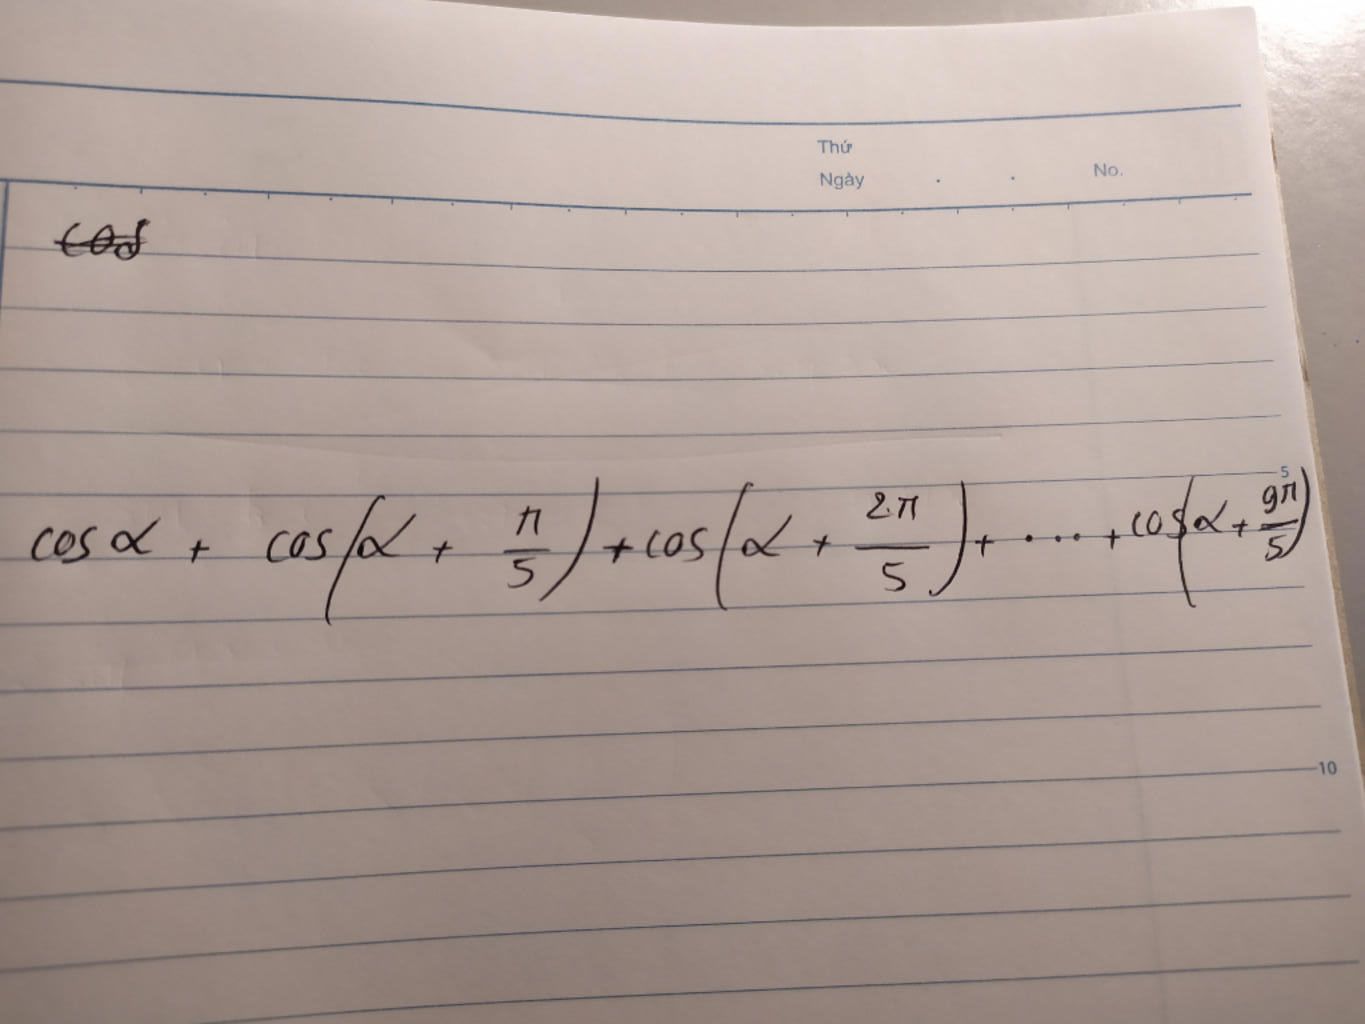 Thứ
Ngày . . No.
cos
5
cos α + cos(α + π/5) + cos(α + 2π/5) + .... + cos(α + 9π/5)
10